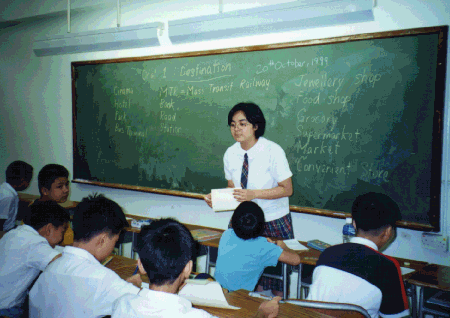 1 Destination 20th October, 1999
Cinema MTR = Mass Transit Railway
Hotel Bank
Park Road
Bus Terminal Station
Jewellery shop
Food shop
Grocery
Supermarket
Market
Convenient Store